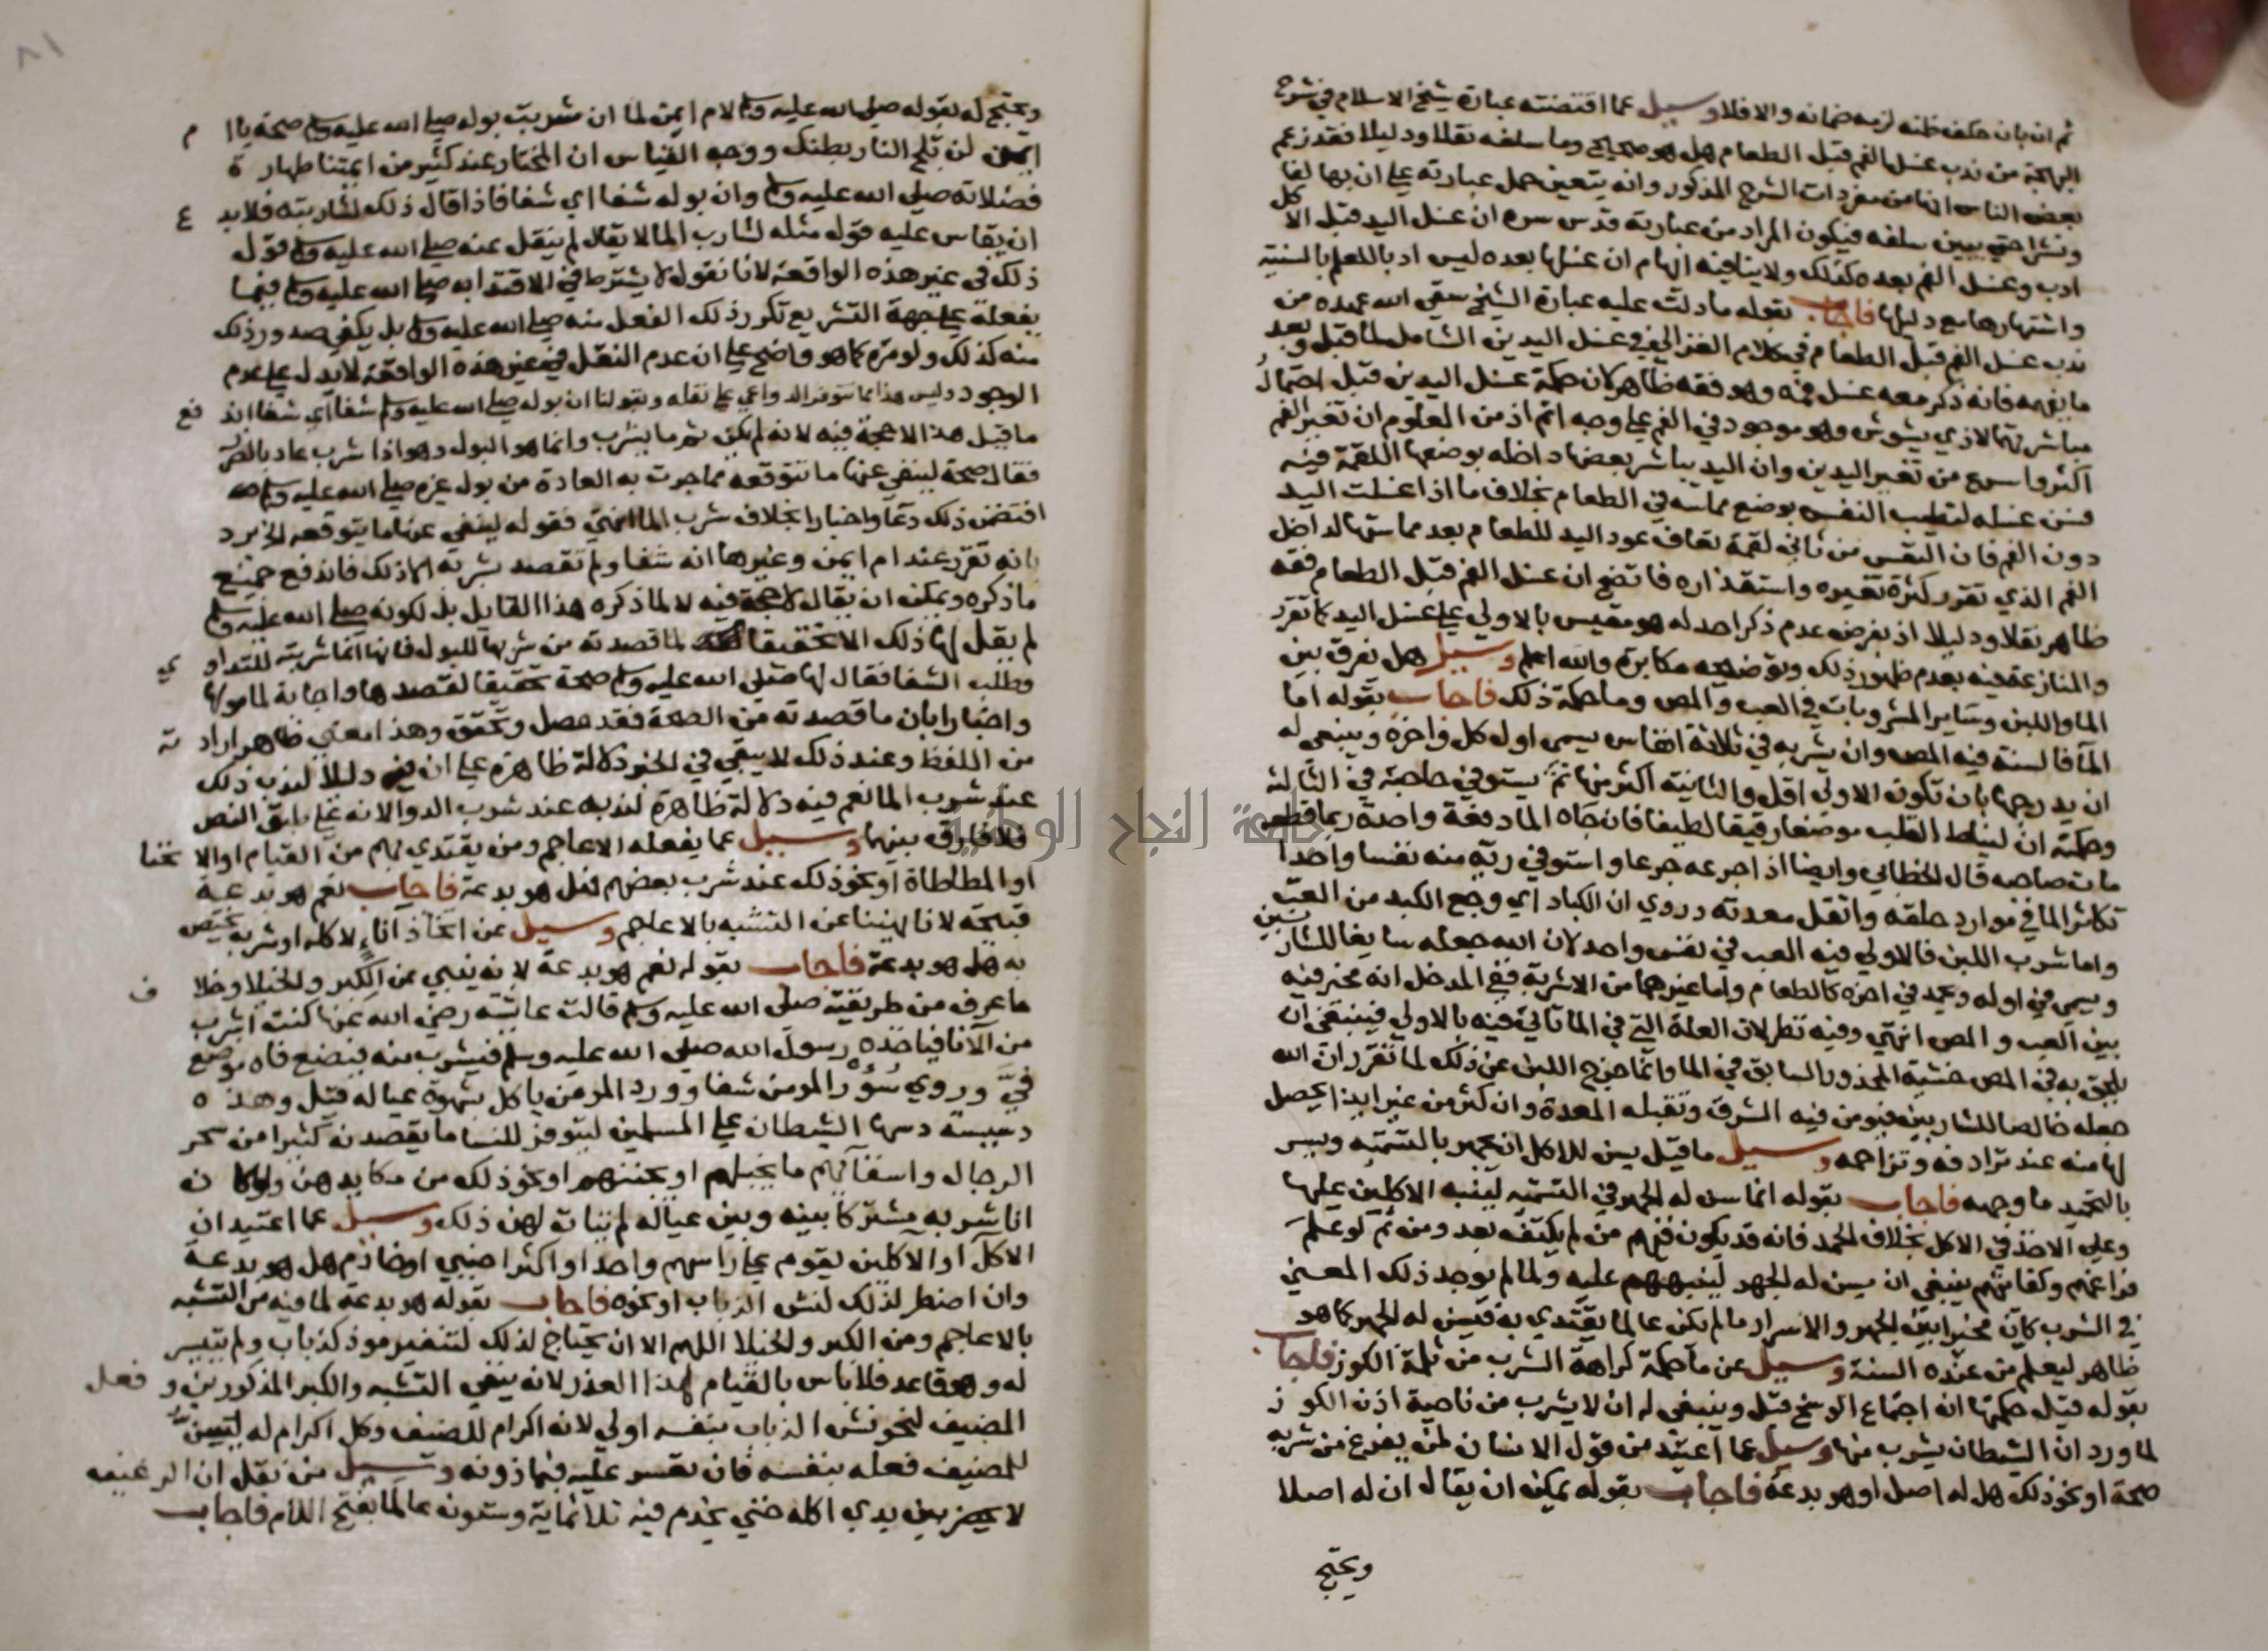 ثم ان بان حكمه ظنه لزمه ضمانه والا فلا وسيل عما اقتضته عبارة شيخ الاسلام في شرح
البهجة من ندب غسل الفم قبل الطعام هل هو صحيح وما سلفه نقلا ودليلا فقد زعم
بعض الناس انها من مفردات الشرح المذكور وانه يتعين حمل عبارته علي ان بها لفا
ونشرا حتي يبين سلفه فيكون المراد من عبارته قدس سره ان غسل اليد قبل الاكل
ادب وغسل الفم بعده كذلك ولا ينافيه ايهام ان غسلها بعده ليس ادبا للعلم بالسنية
واشتهارها مع دليلها فاجاب بقوله ما دلت عليه عبارة الشيخ سقي الله عهده من
ندب غسل الفم قبل الطعام في كلام الغزالي في غسل اليدين الشامل لما قبل وبعد
ما يفهمه فانه ذكر معه غسل فمه وهو فقه ظاهر لان حكمة غسل اليدين قبل احتمال
مباشرتهما لاذي يشوش وهو موجود في الفم علي وجه اتم اذ من المعلوم ان تغير الفم
اكثر واسرع من تغير اليدين وان اليد يباشر بعضها داخله بوضعها اللقمة فيه
فسن غسله لتطيب النفس بوضع مماسه في الطعام بخلاف ما اذا غسلت اليد
دون الفم فان النفس من ثاني لقمة تعاف عود اليد للطعام بعد مماستها لداخل
الفم الذي تقرر كثرة تغيره واستقذاره فاتضح ان غسل الفم قبل الطعام فقه
ظاهر نقلا ودليلا اذ بفرض عدم ذكر احد له هو مقيس بالاولي علي غسل اليد كما تقرر
والمنازعة فيه بعدم ظهور ذلك وبوضوحه مكابرة والله اعلم وسيل هل يفرق بين
الماء واللبن وساير المشروبات في العب والمص وما حكمة ذلك فاجاب بقوله اما
الماء فالسنة فيه المص وان يشربه في ثلاثة انفاس يسمي اول كل واخره وينبغي له
ان يدرجها بان تكون الاولي اقل والثانية اكثر منها ثم يستوفي حاجته في الثالثة
وحكمته ان لنياط القلب موضعا رقيقا لطيفا فان جاه الماء دفعة واحدة ربما قطعه
مات صاحبه قال الخطابي وايضا اذا جرعه جرعا واستوفي ريه منه نفسا واحدا
تكاثر الماء في موارد حلقه واثقل معدته وروي ان الكباد اي وجع الكبد من العب
واما شرب اللبن فالاولي فيه العب في نفس واحد لان الله جعله سايغا للشاربين
ويسمي في اوله ويحمد في اخره كالطعام واما غيرهما من الاشربة ففي المدخل انه مخير فيه
بين العب والمص انتهي وفيه نظر لان العلة التي في الماء تاتي فيه بالاولي فينبغي ان
يلحق به في المص خشية المحذور السابق في الماء وانما خرج اللبن عن ذلك لما تقرر ان الله
جعله خالصا للشاربين فيومن فيه الشرق وتقبله المعدة وان كثر من غير ايذا يحصل
لها منه عند ترادفه وتزاحمه وسيل ما قيل يسن للاكل ان يجهر بالتسمية ويسر
بالتحميد ما وجهه فاجاب بقوله انما سن له الجهر في التسمية لينبه الاكلين عليها
وعلي الاخذ في الاكل بخلاف الحمد فانه قد يكون فيهم من لم يكتف بعد ومن ثم لو علم
فراغهم وكفايتهم ينبغي ان يسن له الجهر لينبههم عليه ولما لم يوجد ذلك المعني
في الشرب كان مخيرا بين الجهر والاسرار ما لم يكن عالما يقتدي به فيسن له الجهر كما هو
ظاهر ليعلم من عنده السنة وسيل عن ما حكمة كراهة الشرب من ثلمة الكوز فاجاب
بقوله قيل حكمتها انه اجتماع الوسخ قيل وينبغي له ان لا يشرب من ناحية اذن الكوز
لما ورد ان الشيطان يشرب منها وسيل عما اعتيد من قول الانسان لمن يفرغ من شربه
صحة او نحو ذلك هل له اصل او هو بدعة فاجاب بقوله يمكن ان يقال ان له اصلا
ويحتج
٨١
ويحتج له بقوله صلي الله عليه وسلم لام ايمن لما ان شربت بوله صلي الله عليه وسلم صحة يا ام
ايمن لن تلج النار بطنك ووجه القياس ان المختار عند كثير من ايمتنا طهارة
فضلاته صلي الله عليه وسلم وان بوله شفا اي شفا فاذا قال ذلك لشاربته فلا بدع
ان يقاس عليه قوله مثله لشارب الماء لا يقال لم ينقل عنه صلي الله عليه وسلم قوله
ذلك في غير هذه الواقعة لانا نقول لا يشترط في الاقتدا به صلي الله عليه وسلم فيما
يفعله علي جهة التشريع تكرر ذلك الفعل منه صلي الله عليه وسلم بل يكفي صدور ذلك
منه كذلك ولو مرة كما هو واضح علي ان عدم النقل في غير هذه الواقعة لا يدل علي عدم
الوجود وليس هذا مما تتوفر الدواعي علي نقله وبقولنا ان بوله صلي الله عليه وسلم شفا اي شفا اندفع
ما قيل هذا لا حجة فيه لانه لم يكن ثم ما يشرب وانما هو البول وهو اذا شرب عاد بالضرر
فقال صحة لينفي عنها ما تتوقعه مما جرت به العادة من بول غيره صلي الله عليه وسلم
افتضمن ذلك دعا واخبارا بخلاف شرب الماء انتهي فقوله لينفي عنها ما يتوقعه الخ يرد
بانه تقرر عند ام ايمن وغيرها انه شفا ولم تقصد بشربه الا ذلك فاندفع جميع
ما ذكره ويمكن ان يقال لا حجة فيه لا لما ذكره هذا القايل بل لكونه صلي الله عليه وسلم
لم يقل لها ذلك الا تحقيقا لما قصدته من شربها للبول فانها انما شربته للتداوي
وطلب الشفا فقال لها صلي الله عليه وسلم صحة تحقيقا لقصدها واجابة لمامولها
واخبارا بان ما قصدته من الصحة فقد حصل وتحقق وهذا معني ظاهر ارادته
من اللفظ وعند ذلك لا يبقي في الخبر دلالة ظاهرة علي ان فيه دليلا لندب ذلك
عند شرب الماء نعم فيه دلالة ظاهرة لندبه عند شرب الدوا لانه علي طبق النص
فلا فارق بينهما وسيل عما يفعله الاعاجم ومن يقتدي بهم من القيام او الانحنا
او المطاطاة او نحو ذلك عند شرب بعضهم فهل هو بدعة فاجاب نعم هو بدعة
قبيحة لانا نهينا عن التشبه بالاعاجم وسيل عن اتخاذ اناء لاكله او شربه يختص
به هل هو بدعة فاجاب بقوله نعم هو بدعة لانه ينبي عن الكبر والخيلا وخلاف
ما عرف من طريقته صلي الله عليه وسلم قالت عايشة رضي الله عنها كنت اشرب
من الاناء فياخذه رسول الله صلي الله عليه وسلم فيشرب منه فيضع فاه موضع
في وروي سؤر المومن شفا وورد المومن ياكل بشهوة عياله قيل وهذه
دسيسة دسها الشيطان علي المسلمين ليتوفر للنسا ما يقصدنه كثيرا من سحر
الرجال واسقائهم ما يخبلهم او يجننهم او نحو ذلك من مكايدهن ولو كان
انا شربه مشتركا بينه وبين عياله لم يتات لهن ذلك وسيل عما اعتيد ان
الاكل او الاكلين يقوم علي راسهم واحد او اكثر اجنبي او خادم هل هو بدعة
وان اضطر لذلك لنش الذباب او نحوه فاجاب بقوله هو بدعة لما فيه من التشبه
بالاعاجم ومن الكبر والخيلا اللهم الا ان يحتاج لذلك لتنفير موذ كذباب ولم يتيسر
له وهو قاعد فلا باس بالقيام لهذا العذر لانه ينفي التشبه والكبر المذكورين وفعل
المضيف لنحو نش الذباب بنفسه اولي لانه اكرام للضيف وكل اكرام له يتعين
للمضيف فعله بنفسه فان تعسر عليه فيماذونه وسيل من نقل ان الرغيف
لا يحضر بين يدي اكله حتي يخدم فيه ثلاثماية وستون عالما بفتح اللام فاجاب
جامعة النجاح الوطنية